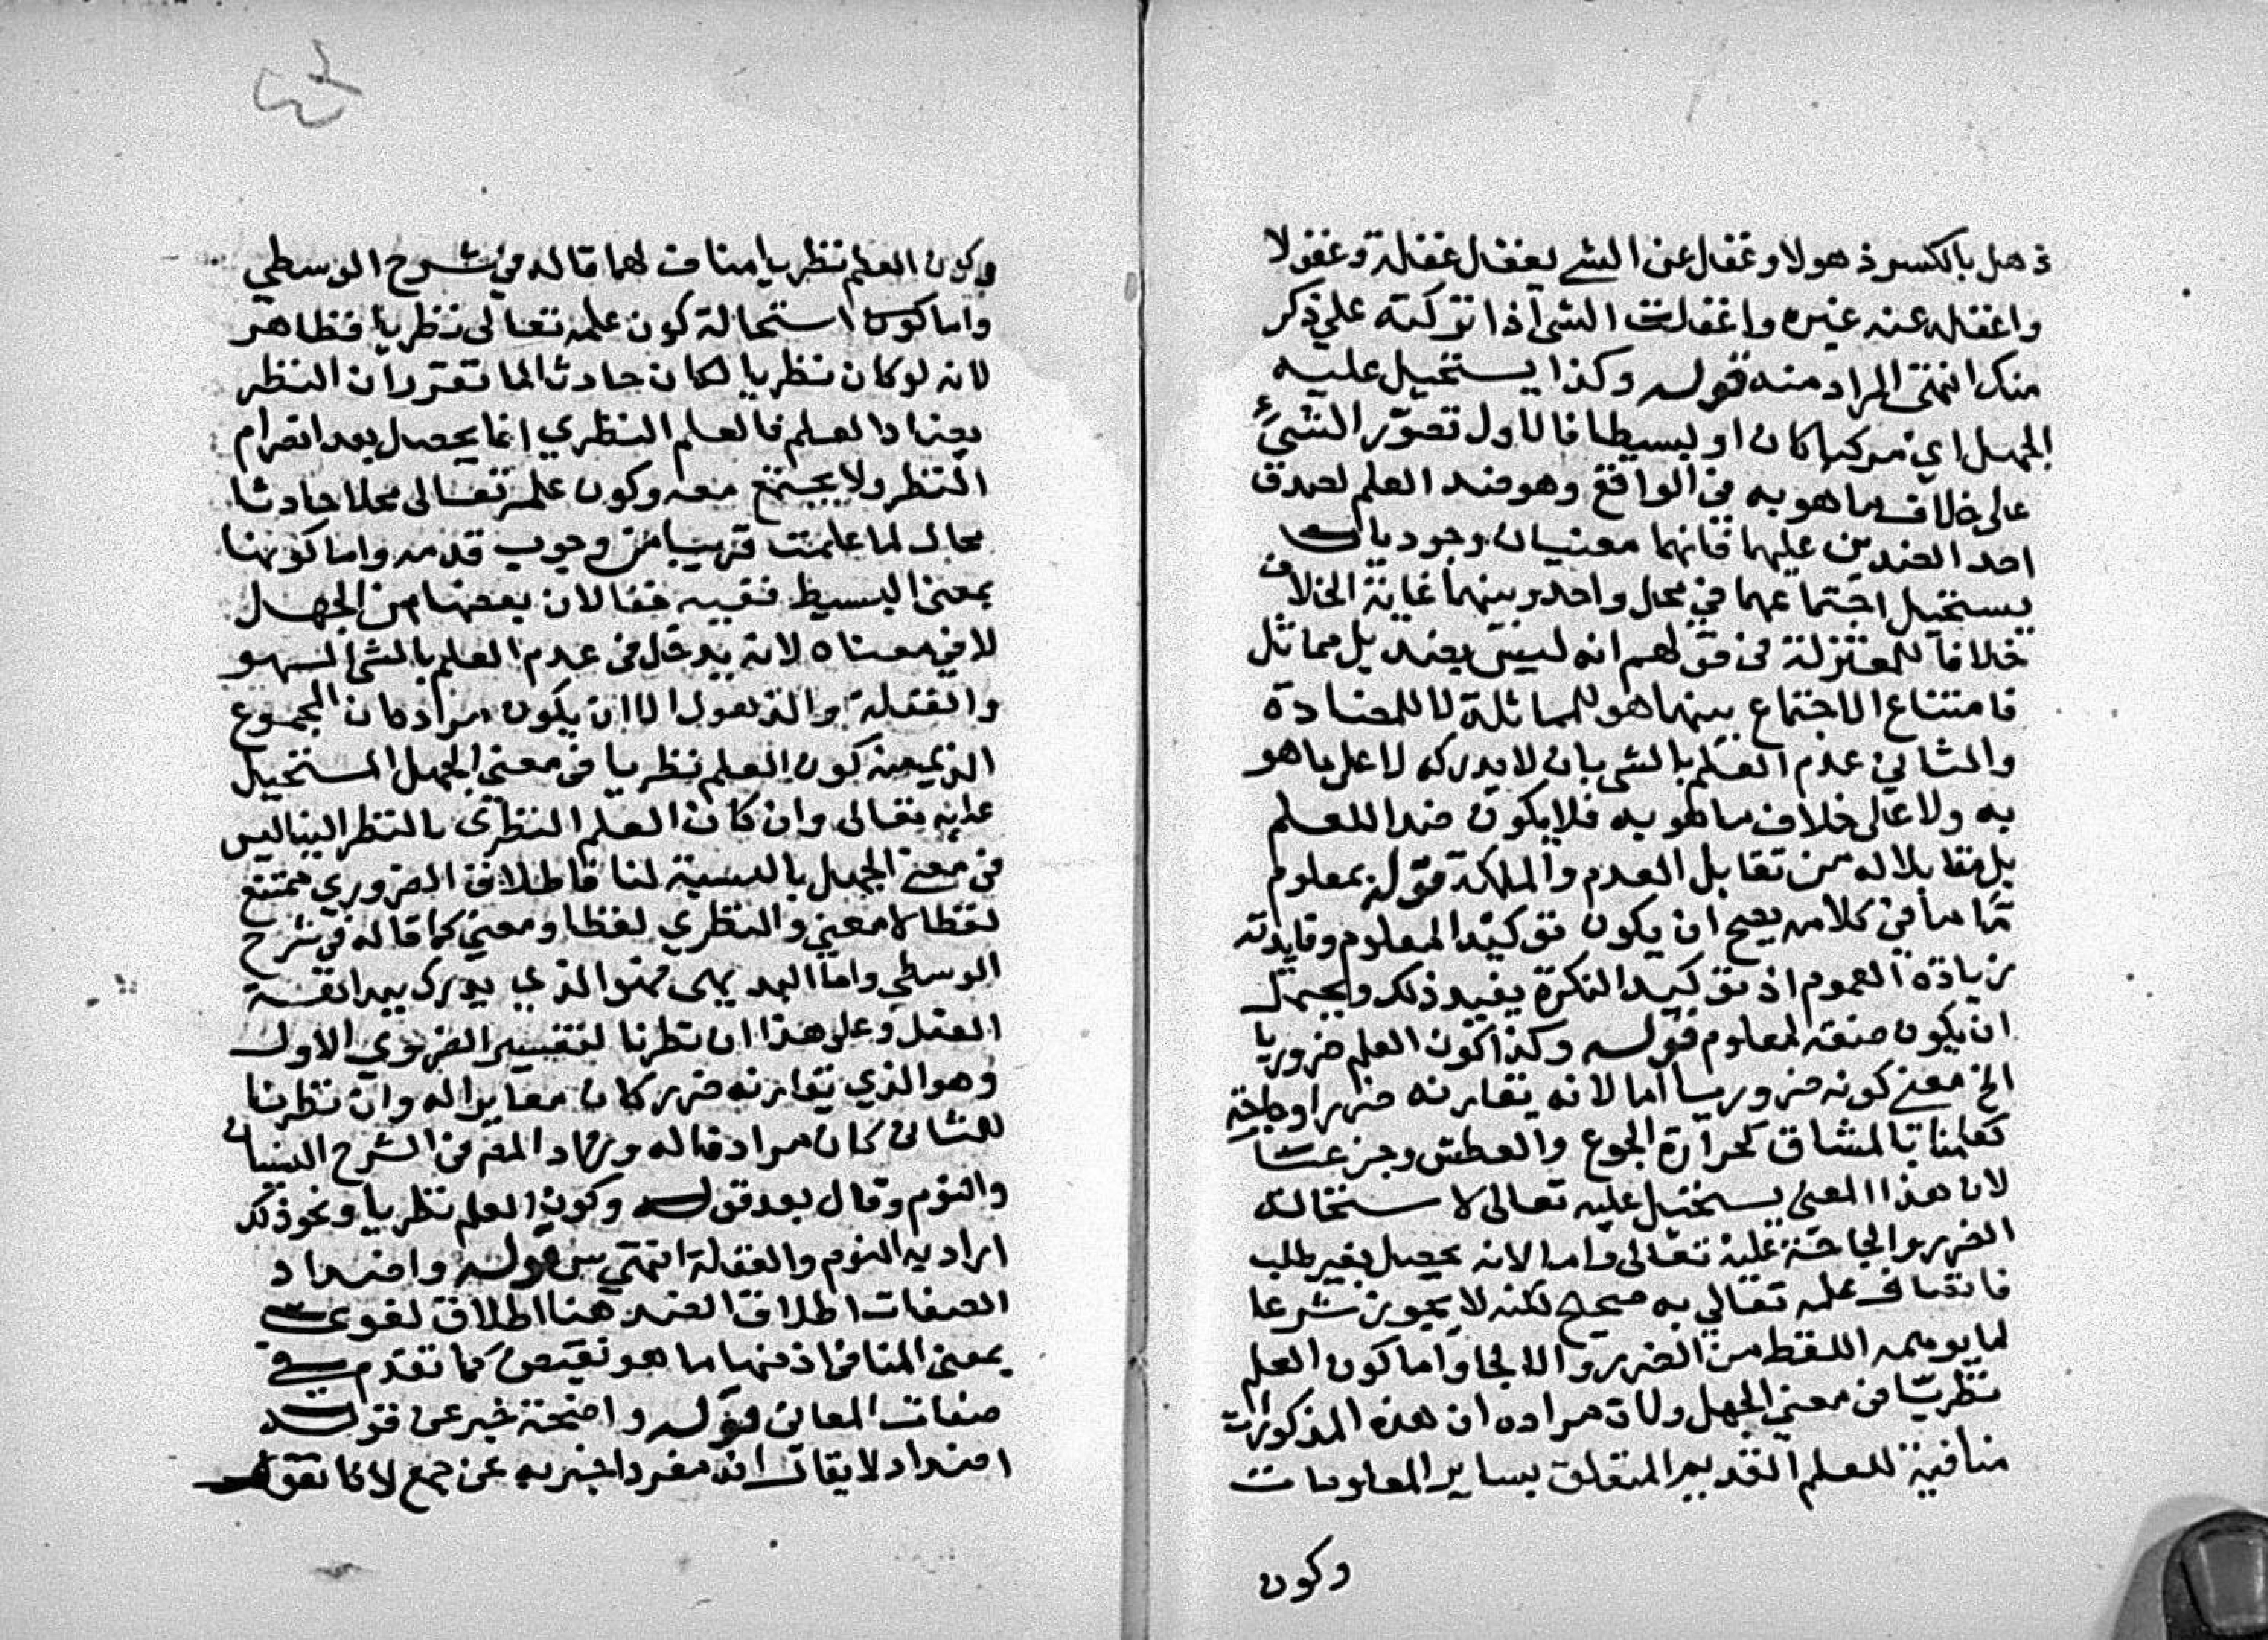 ذهل بالكسر ذهولا وغفل عن الشي يغفل غفلة وغفولا
واغفله عنه غيره واغفلت الشي اذا تركته علي ذكر
منك انتهى المراد منه قوله وكذا يستحيل عليه
الجهل اي مركبا كان او بسيطا فالاول تصوّر الشيء
على خلاف ما هو به في الواقع وهو ضد العلم لصدق
احد الضدين عليهما فانهما معنيان وجوديان
يستحيل اجتماعهما في محل واحد وبينهما غاية الخلاف
خلافا للمعتزلة في قولهم انه ليس بضد بل مماثل
فامتناع الاجتماع بينهما هو للمماثلة لا للمضادة
والثاني عدم العلم بالشي بان لا يدركه لا على ما هو
به ولا على خلاف ما هو به فلا يكون ضدا للعلم
بل مقابلا له من تقابل العدم والملكة قوله بمعلوم
ما ما في كلامه يصح ان يكون توكيدا لمعلوم وفايدته
زيادة العموم اذ توكيد النكرة يفيد ذلك ويحتمل
ان يكون صفة لمعلوم قوله وكذا كون العلم ضروريا
الخ معنى كونه ضروريا اما لانه يقارنه ضررا وحاجة
كعلمنا بالمشاق كحرارة الجوع والعطش وجزعت
لان هذا المعنى يستحيل عليه تعالى لاستحالة
الضرر والحاجة عليه تعالى واما لانه يحصل بغير طلب
فاتصاف علمه تعالي به صحيح لكنه لا يجوز شرعا
لما يوهمه اللفظ من الضرر والالجا واما كون العلم
نظريا في معنى الجهل ولان مراده ان هذه المذكورات
منافية للعلم القديم المتعلق بساير المعلومات
وكون
وكون العلم نظريا مناف لهما قاله في شرح الوسطي
واما كون استحالة كون علمه تعالى نظريا فظاهر
لانه لو كان نظريا لكان حادثا لما تقرر ان النظر
يضاد العلم فالعلم النظري انما يحصل بعد انصرام
النظر ولا يجتمع معه وكون علمه تعالى محلا حادثا
محال لما علمت قريبا من وجوب قدمه واما كونها
بمعنى البسيط ففيه خفا لان بعضها من الجهل
لا في معناه لانه يدخل في عدم العلم بالشي السهو
والغفلة والذهول الا ان يكون مراده ان المجموع
الذي منه كون العلم نظريا في معنى الجهل المستحيل
عليه تعالى وان كان العلم النظري بالنظر الينا ليس
في معنى الجهل بالنسبة لنا فاطلاق الضروري ممتنع
لفظا لا معنى والنظري لفظا ومعنى كما قاله في شرح
الوسطي واما البديهي فهو الذي يدرك ببداهة
العقل وعلى هذا ان نظرنا لتفسير الضروري الاول
وهو الذي يقارنه ضرر كان مغايرا له وان نظرنا
للثاني كان مرادفا له وزاد المص في الشرح النسيان
والنوم وقال بعد قوله وكون العلم نظريا ونحو ذلك
اراد به النوم والغفلة انتهى س قوله واضداد
الصفات اطلاق الضد هنا اطلاق لغوي
بمعنى المنافي اذ منها ما هو نقيض كما تقدم في
صفات المعاني قوله واضحة خبر عن قوله
اضداد لا يقال انه مفرد اخبر به عن جمع لانا نقول